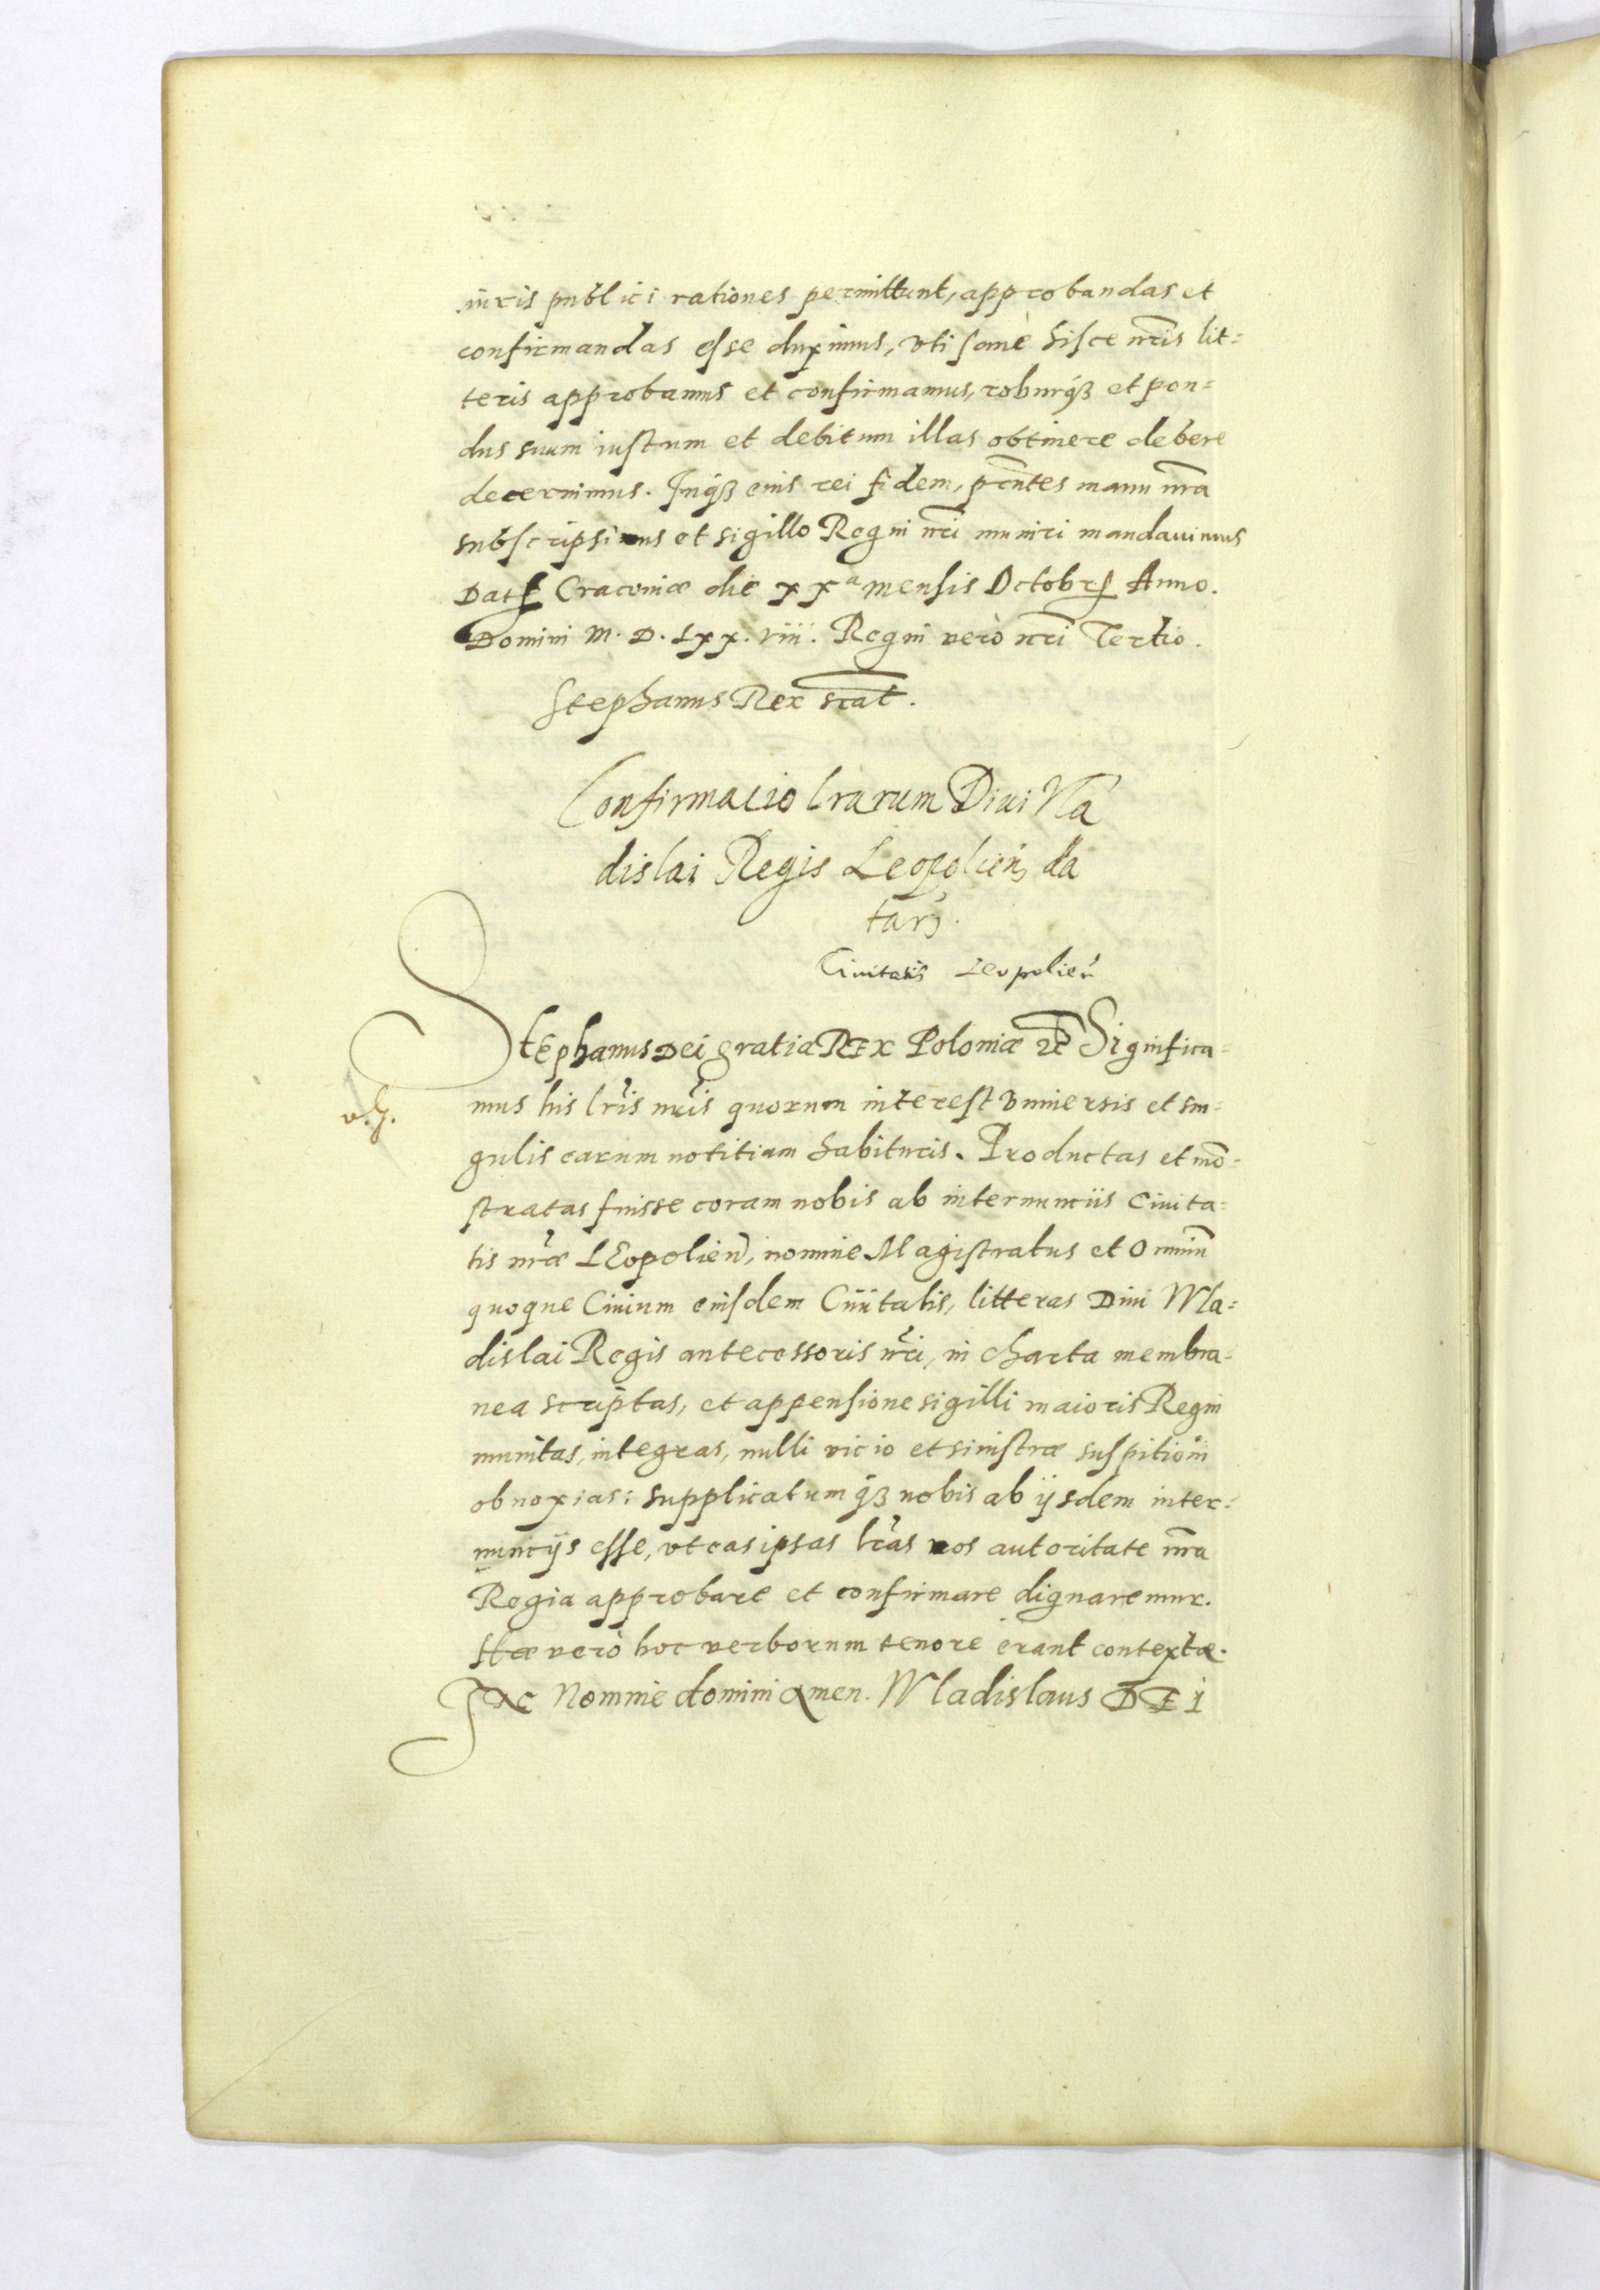 iuris publici rationes permittunt, approbandas et
confirmandas esse duximus, vti sanè hisce nr̃is lit=
teris approbamus et confirmamus, roburq́ꝫ et pon=
dus suum iustum et debitum illas obtinere debere
decernimus. Inq́ꝫ eius rei fidem, pr̃ntes manu nr̃a
subscripsimus et sigillo Regni nr̃i muniri mandauimus
Datꝭ Cracouiæ die xxᵃ mensis Octobrꝭ Anno.
Domini M. D. Lxx. viii. Regni verò nr̃i Tertio.
Stephanus Rex scat̃.
Confirmacio lrarum Diui Vla
dislai Regis Leopolien̄ da
tarꝫ.
Ciuitatis Leopolien̄
Stephanus Dei gratia REX Poloniæ ꝛc̃ Significa=
v. g.
mus his lr̃is nr̃is quorum interest vniuersis et sin=
gulis earum notitiam habituris. Productas et mõ=
stratas fuisse coram nobis ab internunciis Ciuita=
tis nr̃æ LEopolien̄, nomine Magistratus et Omniũ
quoque Ciuium eiusdem Ciuitatis, litteras Diui Wla=
dislai Regis antecessoris nr̃i, in charta membra=
nea scriptas, et appensione sigilli maioris Regni
munitas, integras, nulli vicio et sinistræ suspitioni
obnoxias: supplicatumq́ꝫ nobis ab ijsdem inter=
nuncijs esse, vt eas ipsas lr̃as nos autoritate nr̃a
Regia approbare et confirmare dignaremur.
Hæ verò hoc verborum tenore erant contextæ.
In Nomine domini amen. Wladislaus DEI